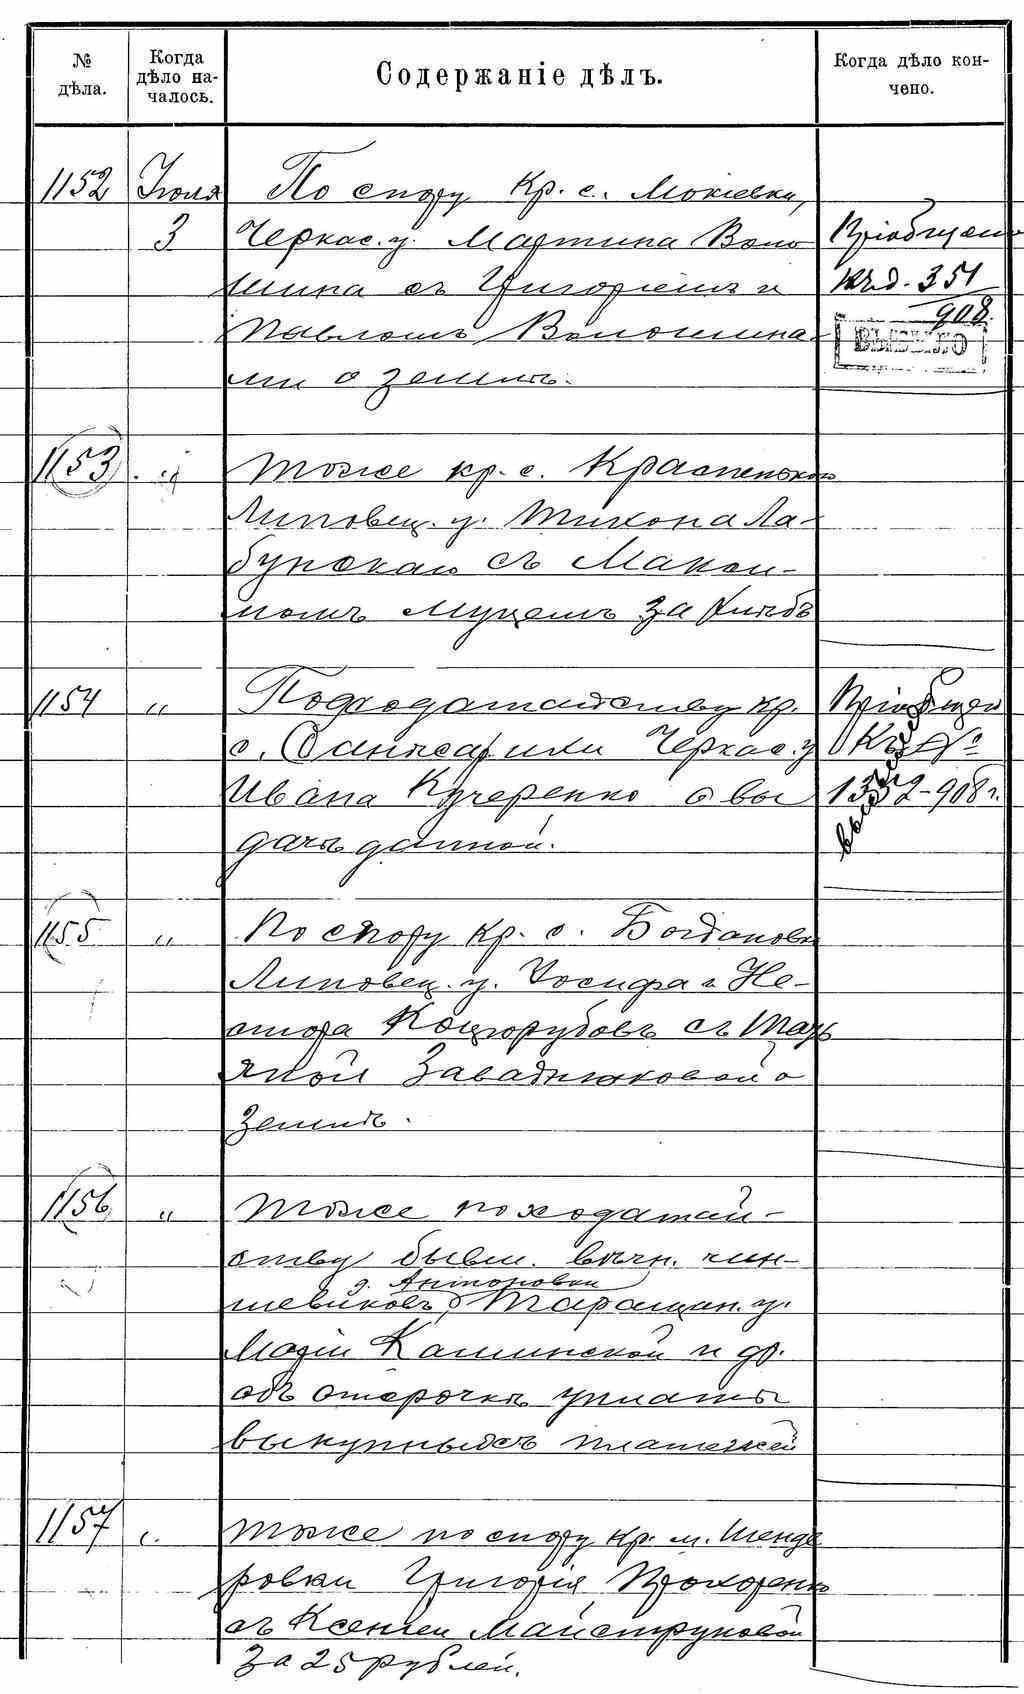 №
дѣла.
Когда
дѣло на-
чалось.
Содержаніе дѣлъ.
Когда дѣло кон-
чено.
1152 Іюля По спору Кр. с. Мокіевки,
3 Черкас. у. Мартина Воло
шина съ Григоріемъ и
Павломъ Волошина-
ми о землѣ.
Пріобщено
къ д. 351
908.
1153 " Тоже кр. с. Красненькаго
Липовец. у. Тихона Ла-
бунскаго съ Макси-
момъ Муцемъ за хлѣбъ
1154 " По ходатайству кр.
с. Черкас. у
Ивана Кучеренко о вы
дачѣ данной.
Пріобщено
Къ №
1352-908 г.
1155 " По спору кр. с. Богдановки
Липовец. у. Іосифа и Не-
стора Коцюрубовъ съ Тать
яной Заваднюковой о
землѣ.
1156 " Тоже по ходатай-
ству бывш. вѣчн. чин-
д. Антоновки
шевиковъ Таращан. у.
Маріи Калининской и др.
объ отсрочкѣ уплаты
выкупныхъ платежей
1157 " Тоже по спору кр. м. Шенде
ровки Григорія Прохоренко
съ Ксеніей Майструковой
за 25 рублей.